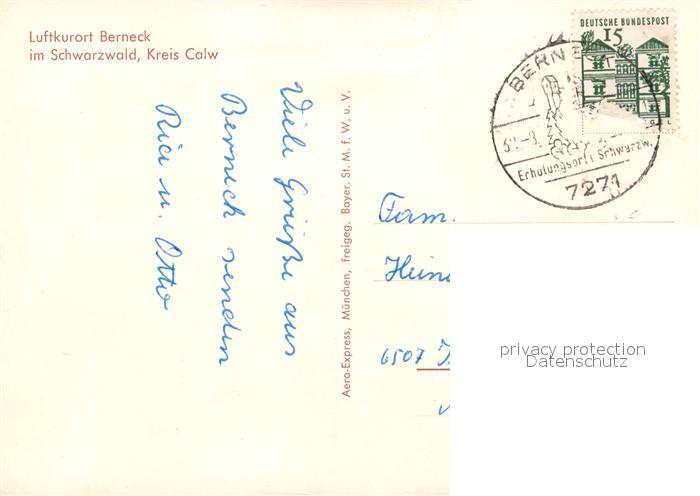 Luftkurort Berneck
im Schwarzwald, Kreis Calw
Viele Grüße aus
Berneck senden
Rici u. Otto
Aero-Express, München, freigeg. Bayer. St. M. f. W. u. V.
DEUTSCHE BUNDESPOST
15
BERNECK
Erholungsort i. Schwarzw.
7271
Fam.
6507
privacy protection
Datenschutz